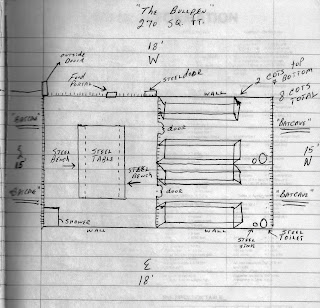 "The Bullpen"
270 SQ. FT.
18'
W
outside
Door
Food
Portal
STEEL door
2 COTS top
& Bottom
8 COTS
TOTAL
WALL
door
"BATCAVE"
15'
W
STEEL
BENCH
STEEL
TABLE
STEEL
BENCH
door
"BATCAVE"
SHOWER
WALL
WALL
STEEL
SINK
STEEL
TOILET
18'